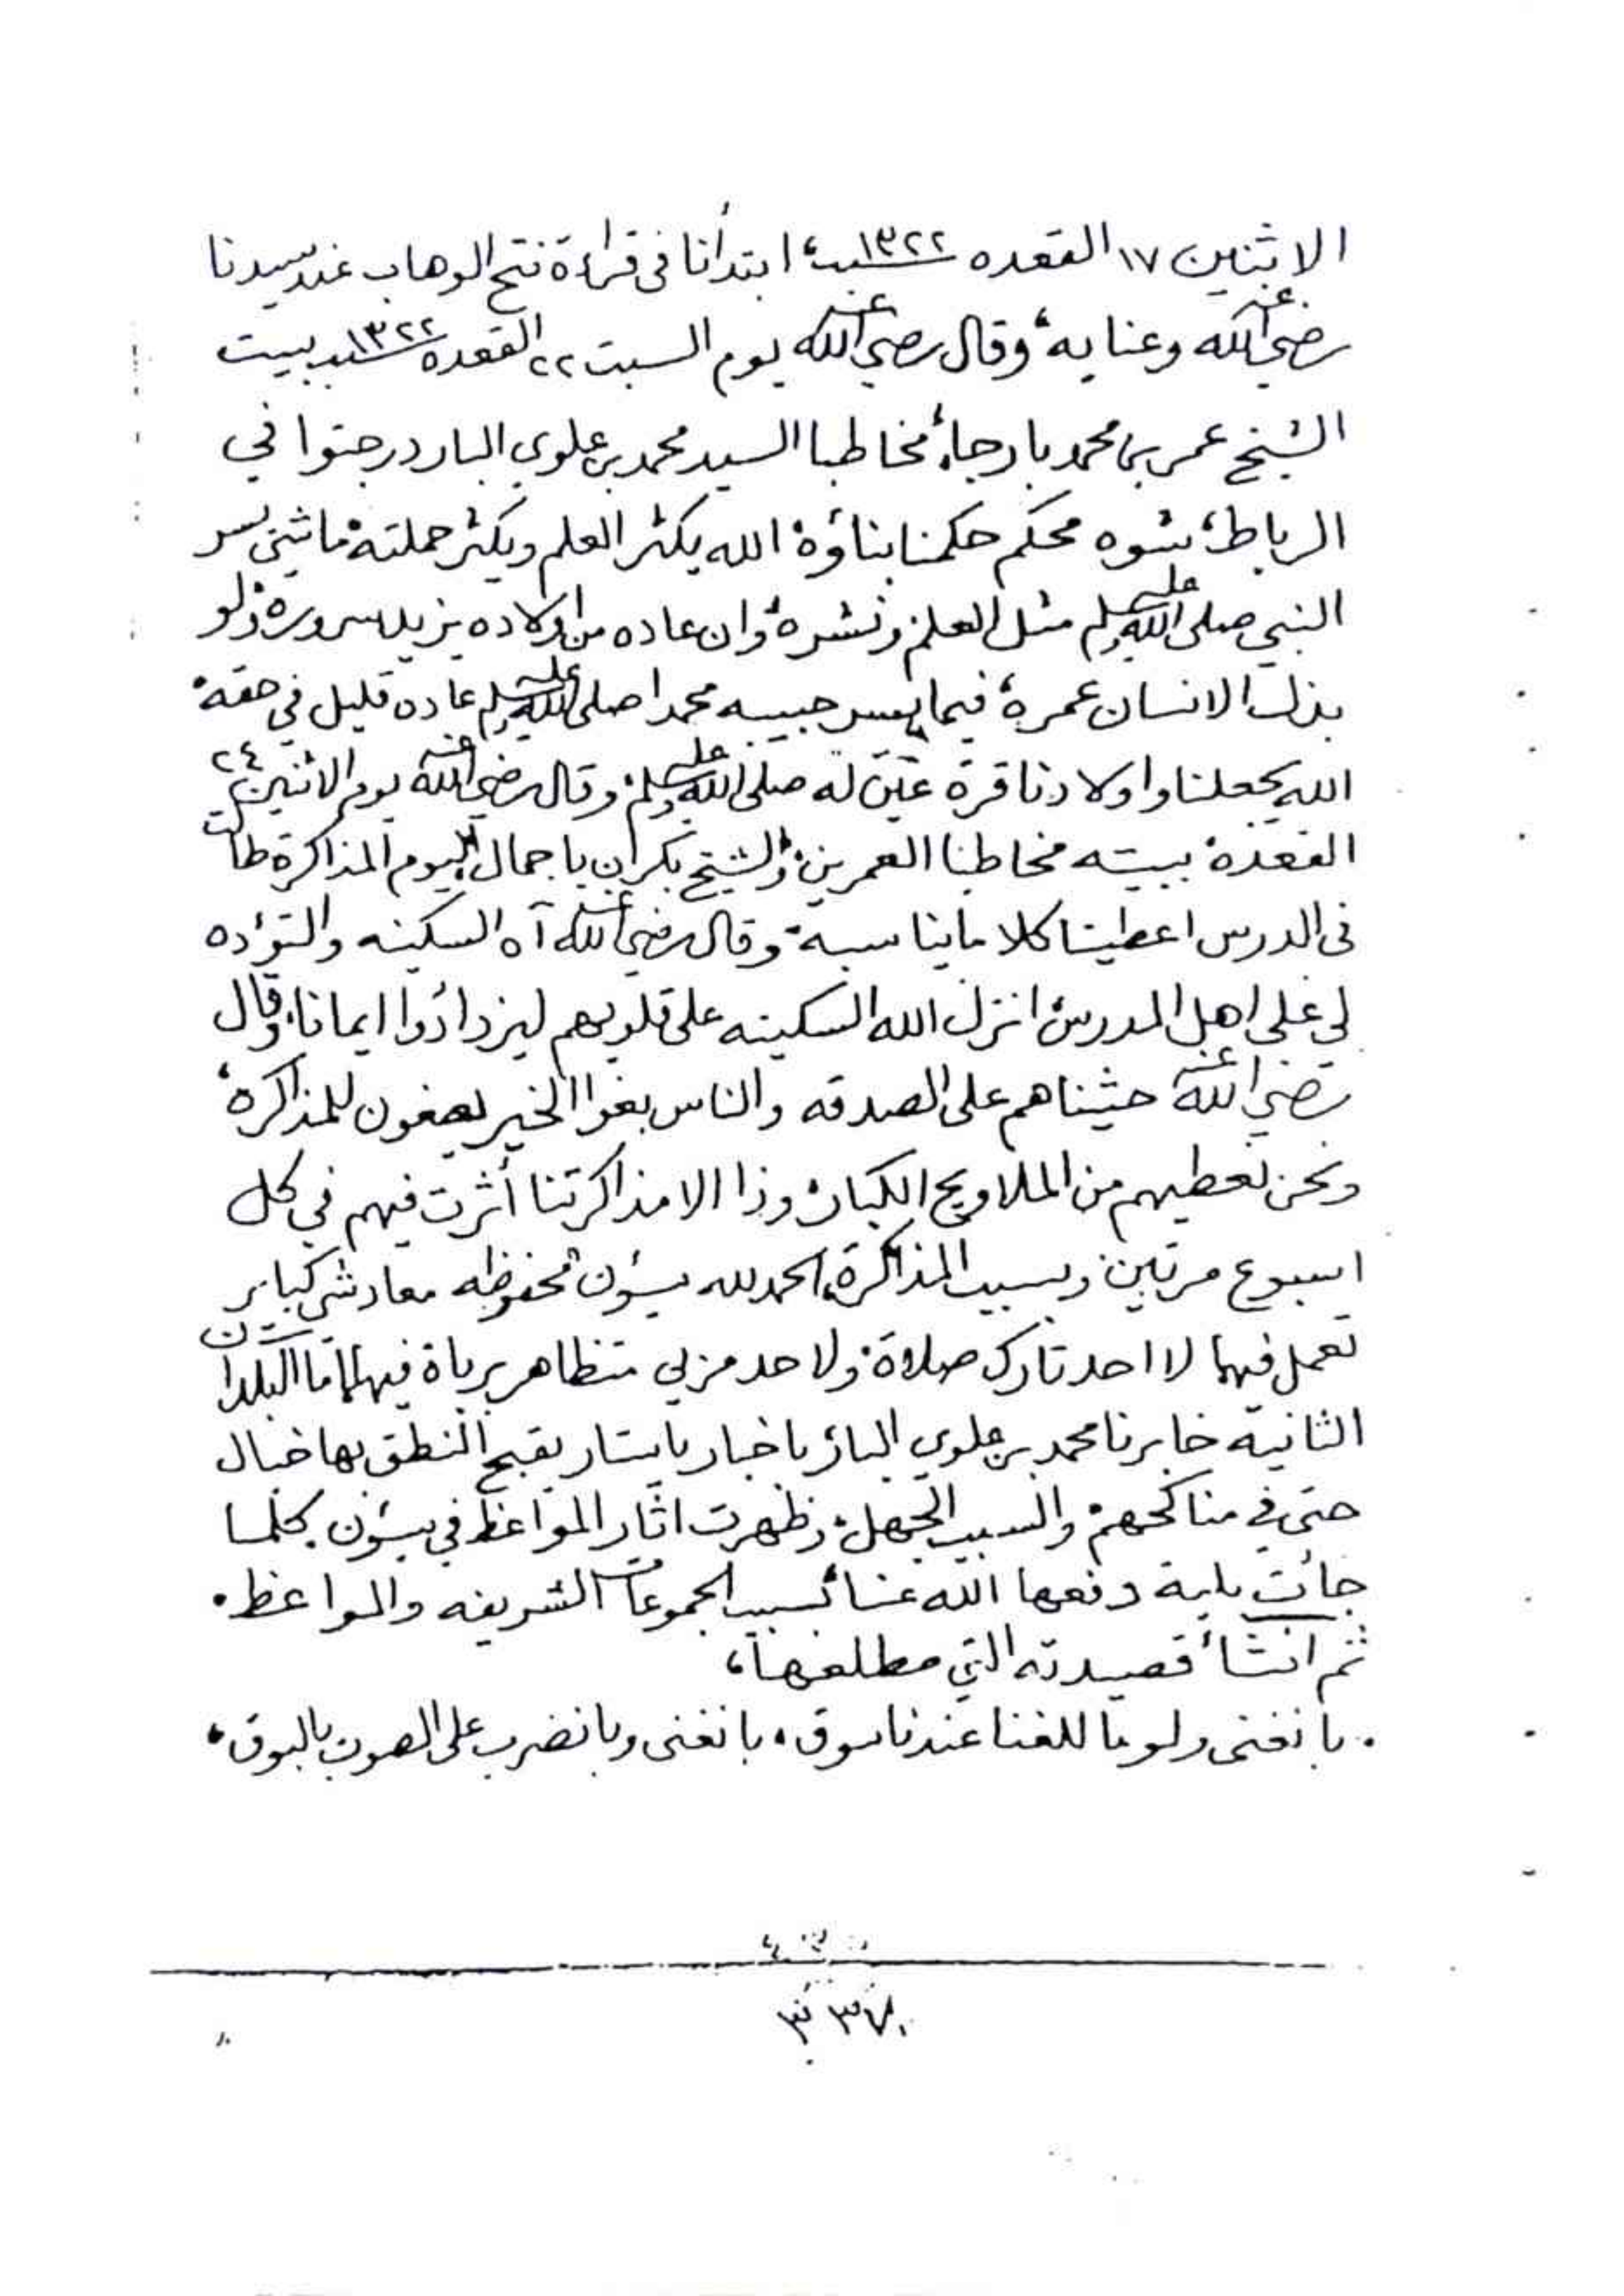 الاثنين ١٧ القعده سنة ١٣٢٢ ابتدأنا في قراءة فتح الوهاب عند سيدنا
رضي الله عنه وعنا به، وقال رضي الله عنه يوم السبت ٢٢ القعده سنة ١٣٢٢ ببيت
الشيخ عمر بن محمد بارجاء مخاطبا السيد محمد بن علوي البار درجتوا في
الرباط، شوه محكم حكمنا بناؤه الله يكثر العلم ويكثر حملته ما شي يسر
النبي صلى الله عليه وسلم مثل العلم ونشره وان عاده من اولاده يزيد سروره ولو
بذل الانسان عمره فيما يسر حبيبه محمدا صلى الله عليه وسلم عاده قليل في حقه
الله يجعلنا واولادنا قرة عين له صلى الله عليه وسلم وقال رضي الله عنه يوم الاثنين ٢٤
القعدة ببيته مخاطبا العمرين والشيخ بكران باجمال اليوم المذاكرة طالت
في الدرس اعطيتنا كلا ما يناسبه وقال رضي الله عنه آه السكينه والتؤده
لي على اهل المدرس انزل الله السكينه على قلوبهم ليزدادوا ايمانا، وقال
رضي الله عنه حثيناهم على الصدقه والناس بغوا الخير يصغون للمذاكره
ونحن نعطيهم من الملاويح الكبار وذا الا مذاكرتنا أثرت فيهم في كل
اسبوع مرتين وبسبب المذاكرة الحمد لله سيؤن محفوظه معاد شي كباير
تعمل فيها لا احد تارك صلاة ولا حد مربي متظاهر برباة فيها اما البلدان
الثانيه خابرنا محمد بن علوي البار باخبار يقبح النطق بها خبال
حتى في مناكحهم والسبب الجهل وظهرت اثار المواعظ في سيؤن كلما
جأت بلية دفعها الله عنا بسبب الجموعات الشريفه والمواعظ.
ثم انشأ قصيدته التي مطلعها،
. بانغني ولو ما للغنا عندنا سوق، بانغني وبانضرب على الصوت بالبوق،